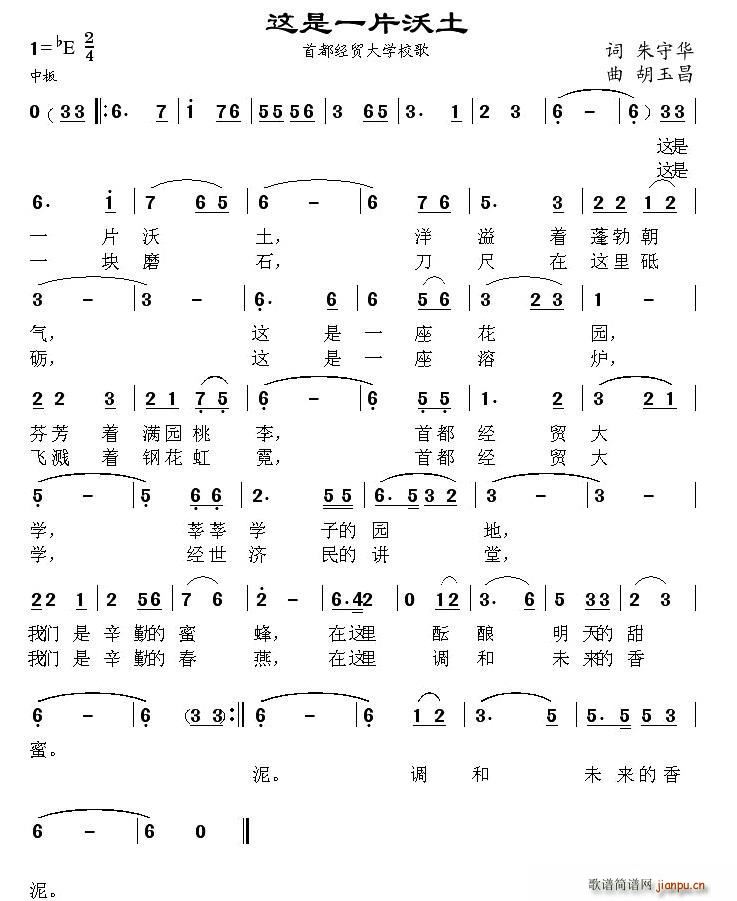 这是一片沃土
1=♭E 2/4 首都经贸大学校歌 词 朱守华
中板 曲 胡玉昌
0 (3 3 |: 6. 7 | i 7 6 | 5 5 5 5 6 | 3 6 5 | 3. 1 | 2 3 | 6 - | 6) 3 3 |
这是
这是
6. i | 7 6 5 | 6 - | 6 7 6 | 5. 3 | 2 2 1 2 |
一 片 沃 土, 洋 溢 着 蓬 勃 朝
一 块 磨 石, 刀 尺 在 这 里 砥
3 - | 3 - | 6. 6 | 6 5 6 | 3 2 3 | 1 - |
气, 这 是 一 座 花 园,
砺, 这 是 一 座 溶 炉,
2 2 3 | 2 1 7 5 | 6 - | 6 5 5 | 1. 2 | 3 2 1 |
芬 芳 着 满 园 桃 李, 首 都 经 贸 大
飞 溅 着 钢 花 虹 霓, 首 都 经 贸 大
5 - | 5 6 6 | 2. 5 5 | 6. 5 3 2 | 3 - | 3 - |
学, 莘 莘 学 子 的 园 地,
学, 经 世 济 民 的 讲 堂,
2 2 1 | 2 5 6 | 7 6 | 2 - | 6. 4 2 | 0 1 2 | 3. 6 | 5 3 3 | 2 3 |
我们 是 辛 勤的 蜜 蜂, 在这里 酝 酿 明 天的 甜
我们 是 辛 勤的 春 燕, 在这里 调 和 未 来的 香
6 - | 6 (3 3) :| 6 - | 6 1 2 | 3. 5 | 5. 5 5 3 |
蜜。
泥。 调 和 未 来 的 香
6 - | 6 0 ‖
泥。
歌谱简谱网 jianpu.cn